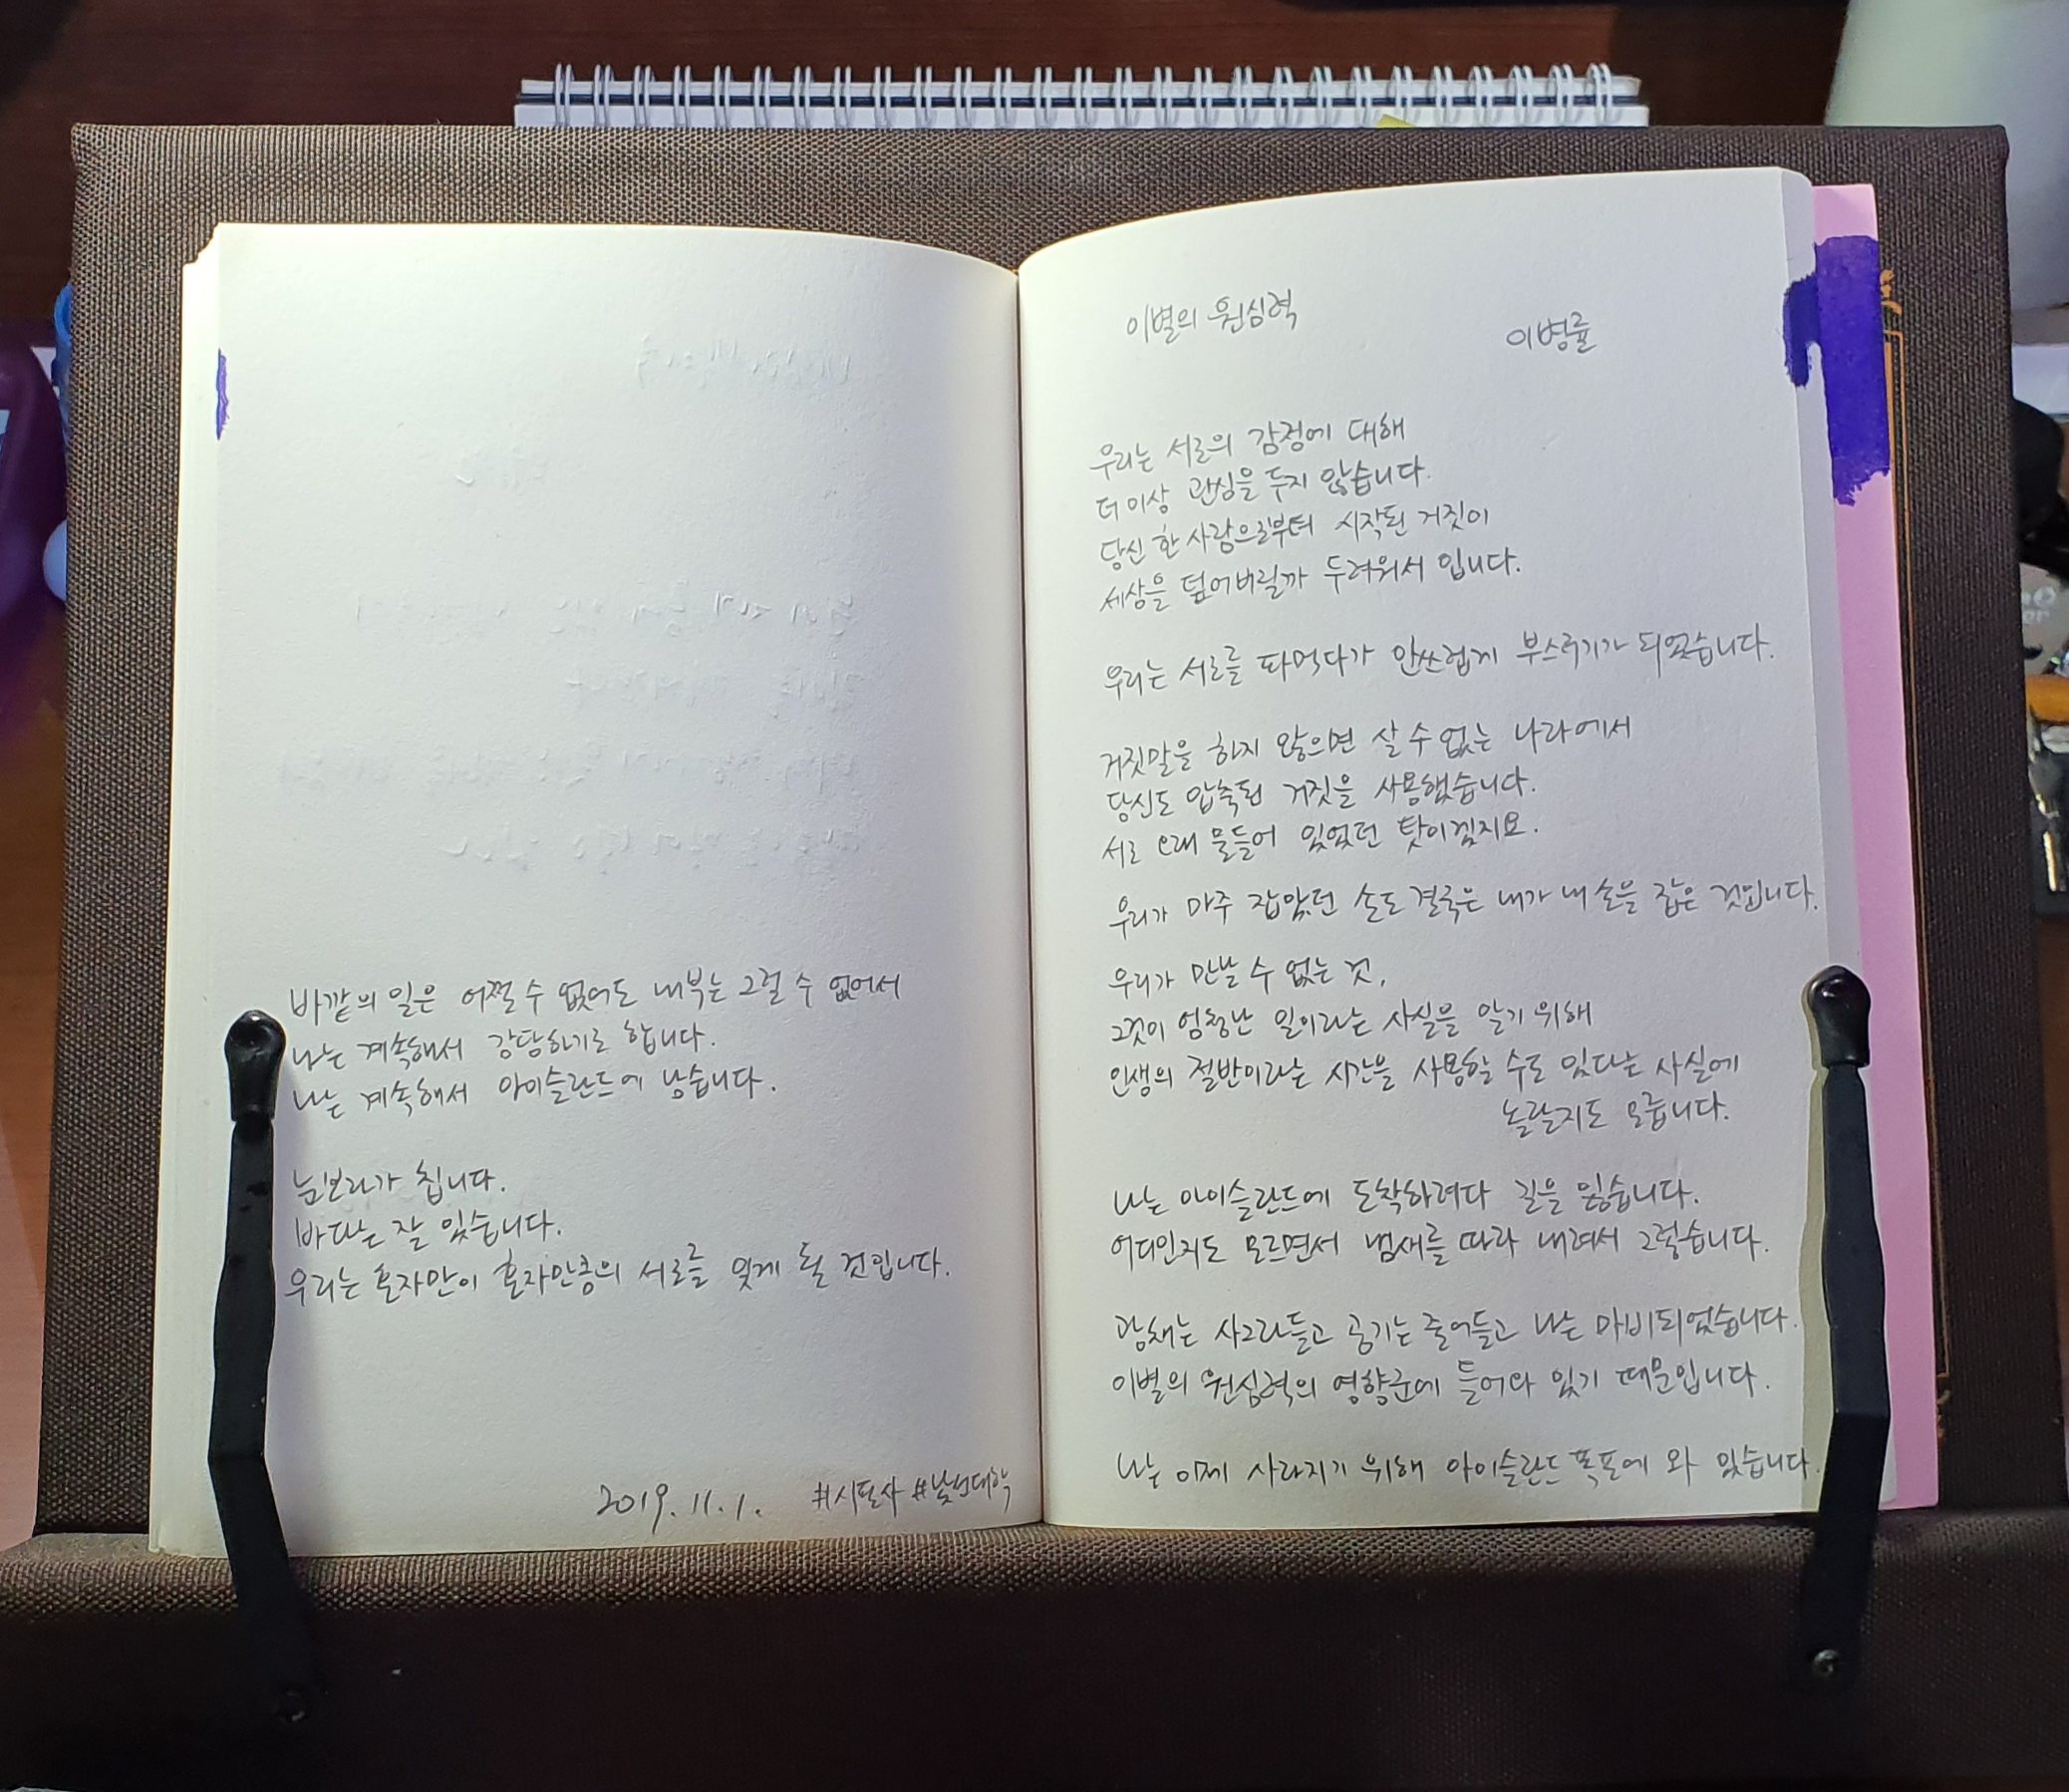 이별의 원심력
이병률
우리는 서로의 감정에 대해
더 이상 관심을 두지 않습니다.
당신 한 사람으로부터 시작된 거짓이
세상을 덮어버릴까 두려워서 입니다.
우리는 서로를 파먹다가 안쓰럽게 부스러기가 되었습니다.
거짓말을 하지 않으면 살 수 없는 나라에서
당신도 압축된 거짓을 사용했습니다.
서로 오래 물들어 있었던 탓이겠지요.
우리가 마주 잡았던 손도 결국은 내가 내 손을 잡은 것입니다.
우리가 만날 수 없는 것,
그것이 엄청난 일이라는 사실을 알기 위해
인생의 절반이라는 시간을 사용할 수도 있다는 사실에
놀랄지도 모릅니다.
나는 아이슬란드에 도착하려다 길을 잃습니다.
어디인지도 모르면서 냄새를 따라 내려서 그렇습니다.
광채는 사그라들고 공기는 줄어들고 나는 마비되었습니다.
이별의 원심력의 영향권에 들어와 있기 때문입니다.
나는 이제 사라지기 위해 아이슬란드 폭포에 와 있습니다.
바깥의 일은 어쩔 수 없어도 내부는 그럴 수 없어서
나는 계속해서 감당하기로 합니다.
나는 계속해서 아이슬란드에 남습니다.
눈보라가 칩니다.
바다는 잘 있습니다.
우리는 혼자만이 혼자만큼의 서로를 잊게 될 것입니다.
2019. 11. 1. #시필사 #낯선대학